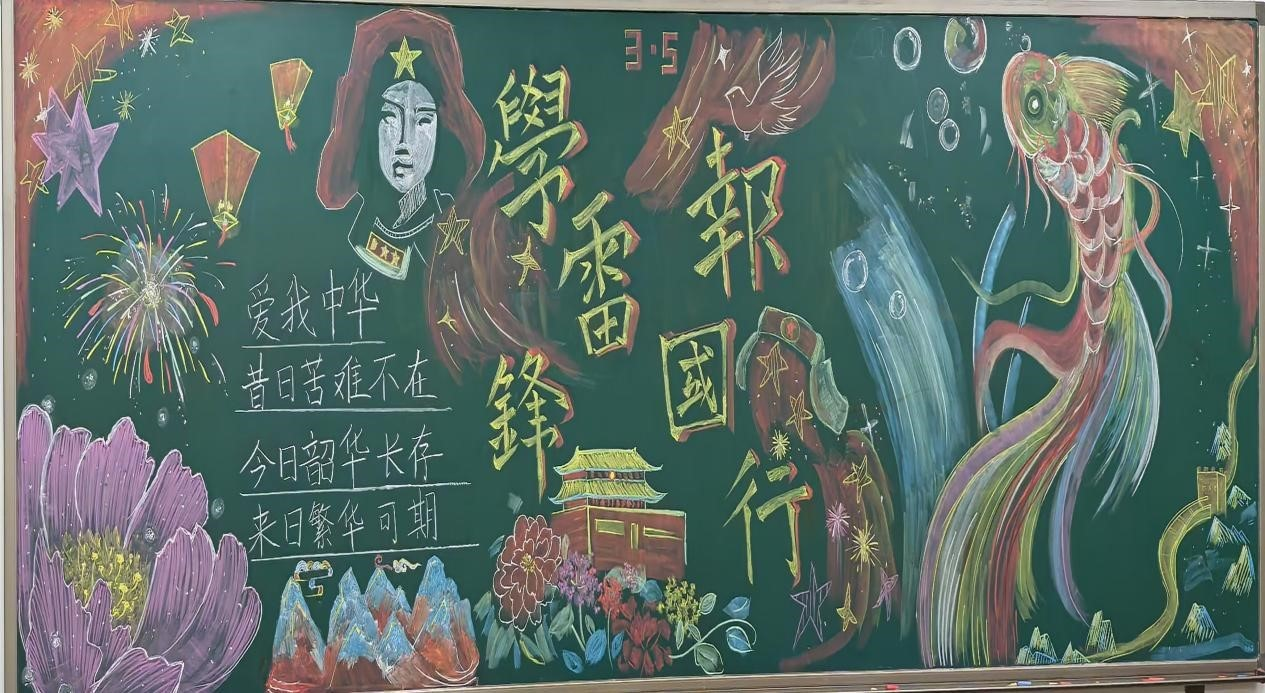 3·5
學雷鋒
報國行
爱我中华
昔日苦难不在
今日韶华长存
来日繁华可期